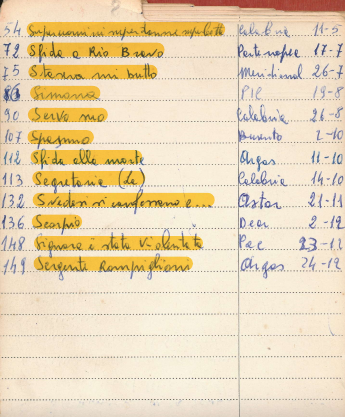 54 Superuomini superdonne superbotte Calabria 11-5
72 Sfida a Rio Bravo Partenopea 17-7
75 Stasera mi butto Meridional 26-7
86 Simona PIC 19-8
90 Servo mio Calabria 26-8
107 Spasmo 2-10
112 Sfida alla morte Argos 11-10
113 Segretaria (La) Calabria 14-10
132 Svedesi si confessano e... Astor 21-11
136 Scorpio Dear 2-12
148 Signora è stata Violentata Pac 23-12
149 Sergente Rompiglioni Argos 24-12